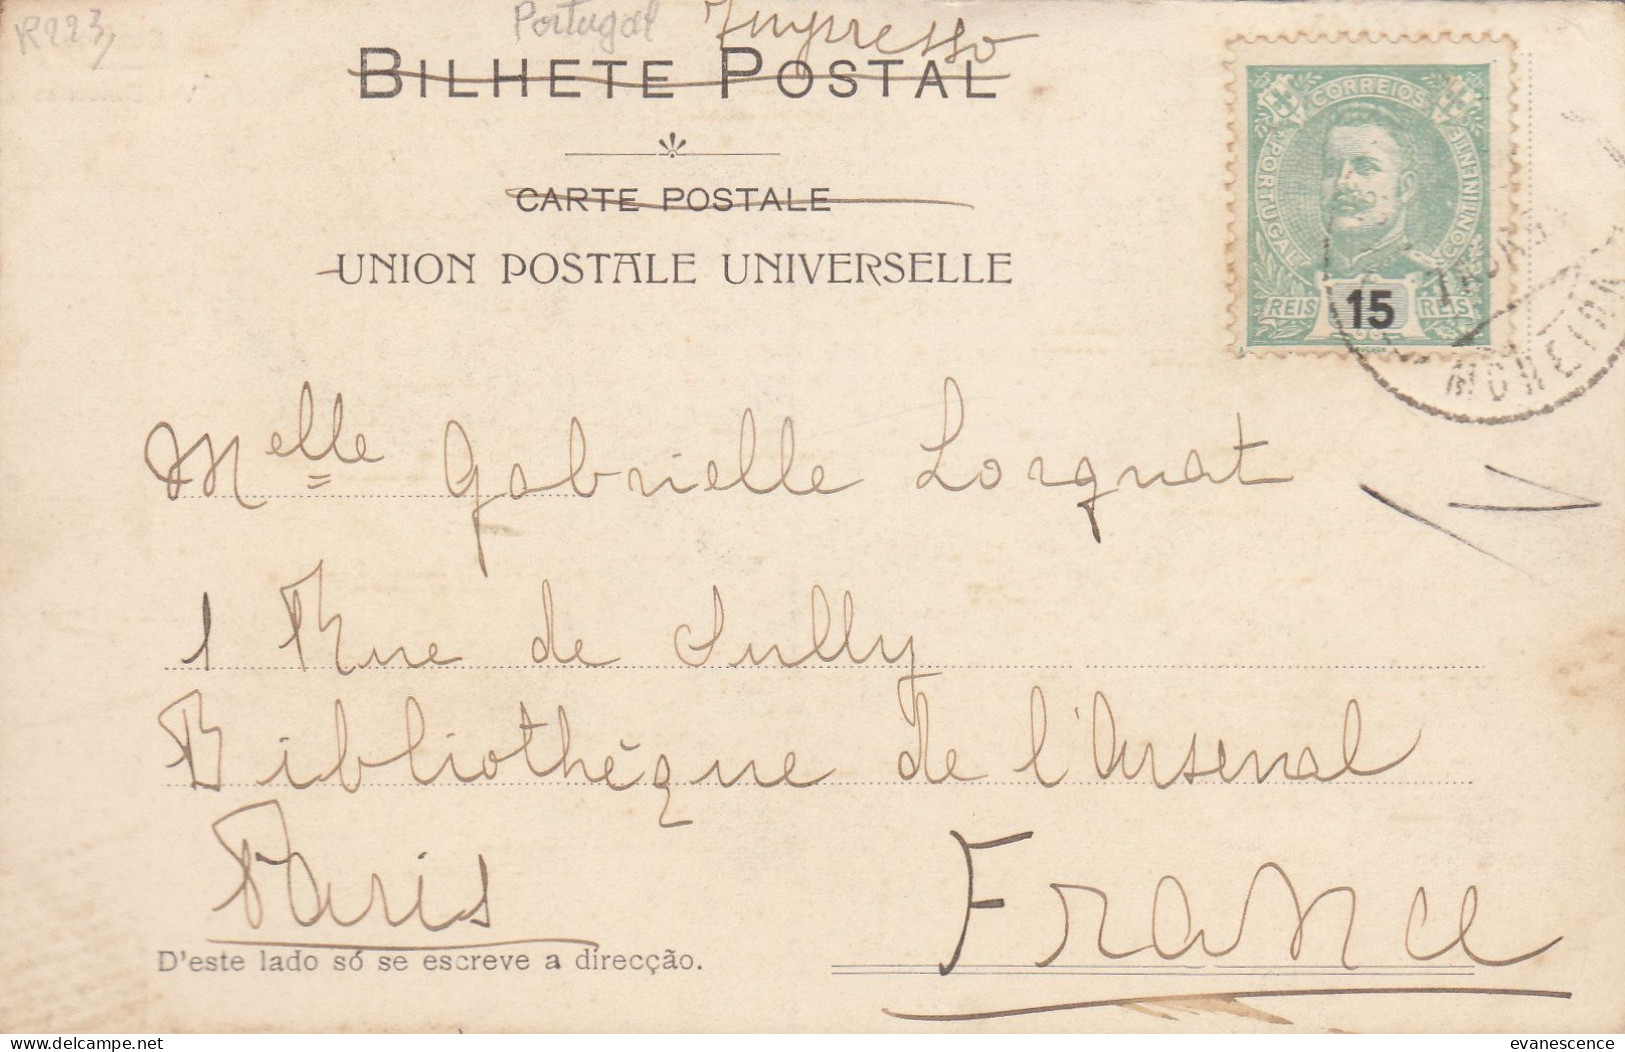 R223,
Portugal
Impresso
BILHETE POSTAL
CARTE POSTALE
UNION POSTALE UNIVERSELLE
CORREIOS
PORTUGAL
CONTINENTE
REIS 15 REIS
Melle Gabrielle Lorquat
1 Rue de Sully
Bibliothèque de l'Arsenal
Paris
France
D'este lado só se escreve a direcção.
www.delcampe.net
evanescence